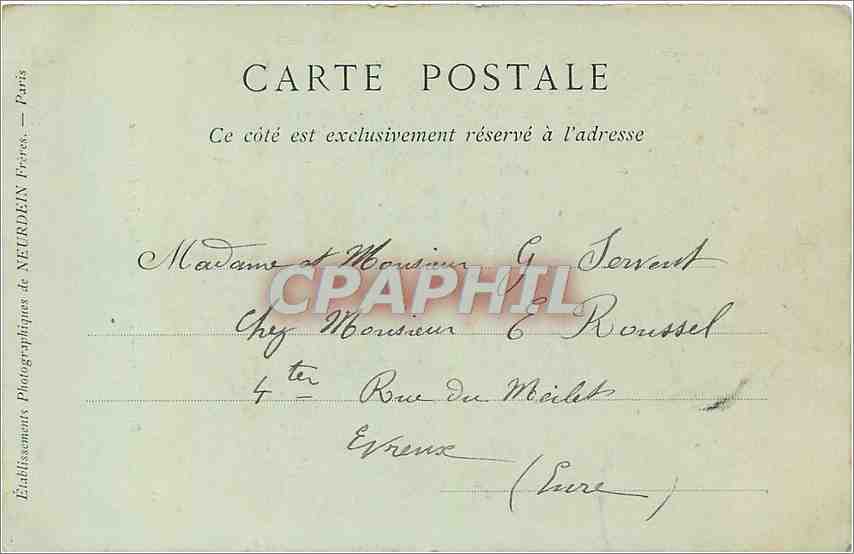 CARTE POSTALE
Ce côté est exclusivement réservé à l'adresse
Établissements Photographiques de NEURDEIN Frères. — Paris
Madame et Monsieur G Servent
CPAPHIL
Chez Monsieur E Roussel
4 ter Rue du Meilet
Evreux
(Eure)